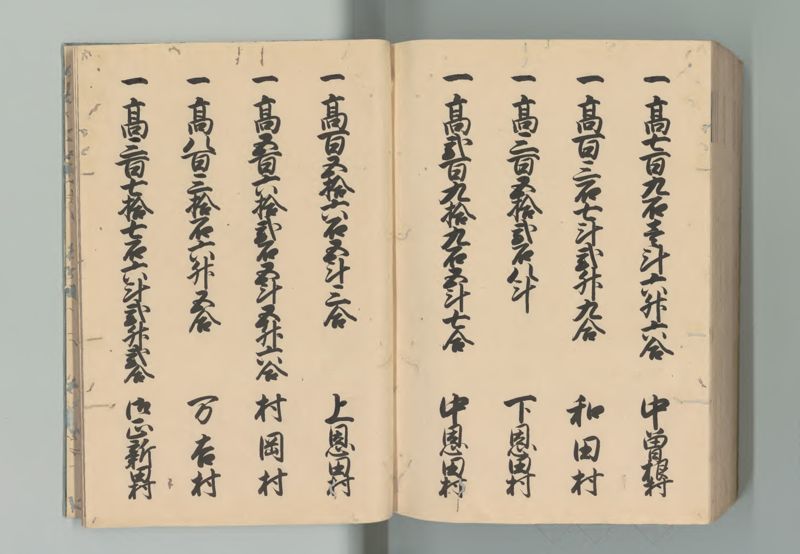 一 高七百九石壱斗六升六合 中曽根村
一 高百三石七斗弐升九合 和田村
一 高三百五拾弐石八斗 下恩田村
一 高弐百九拾九石五斗七合 中恩田村
一 高百五拾六石五斗三合 上恩田村
一 高五百六拾弐石五斗五升六合 村岡村
一 高八百三拾石六升五合 万吉村
一 高三百七拾七石六斗弐升弐合 御正新田村